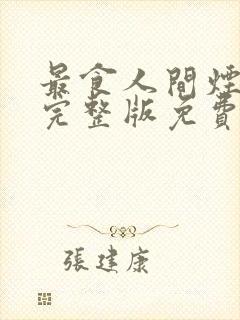 最食人間煙
完整版免費
張建康